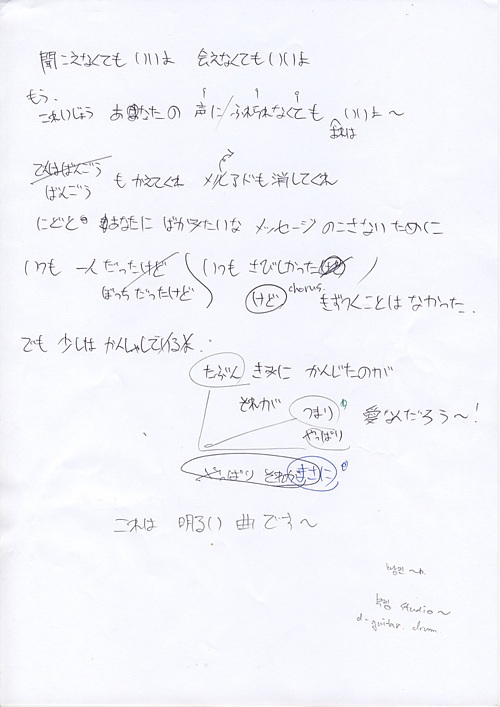 聞こえなくてもいいよ 会えなくてもいいよ
もう、
これいじょう あなたの 声に/ふれられなくても いいよ〜
おれは
でんわばんごう
ばんごう も かえてくれ メルアドも消してくれ
にどと あなたに ばかみたいな メッセージ のこさない ために
いつも 一人だったけど いつも さびしかった
ぼっちだったけど けど chorus. きずつくことは なかった.
でも 少しは かんしゃしているよ.
たぶん きみに かんじたのが
それが つまり 愛なんだろう〜!
やっぱり
やっぱり それが まさに
これは 明るい 曲です〜
studio〜
d-guitar. drum